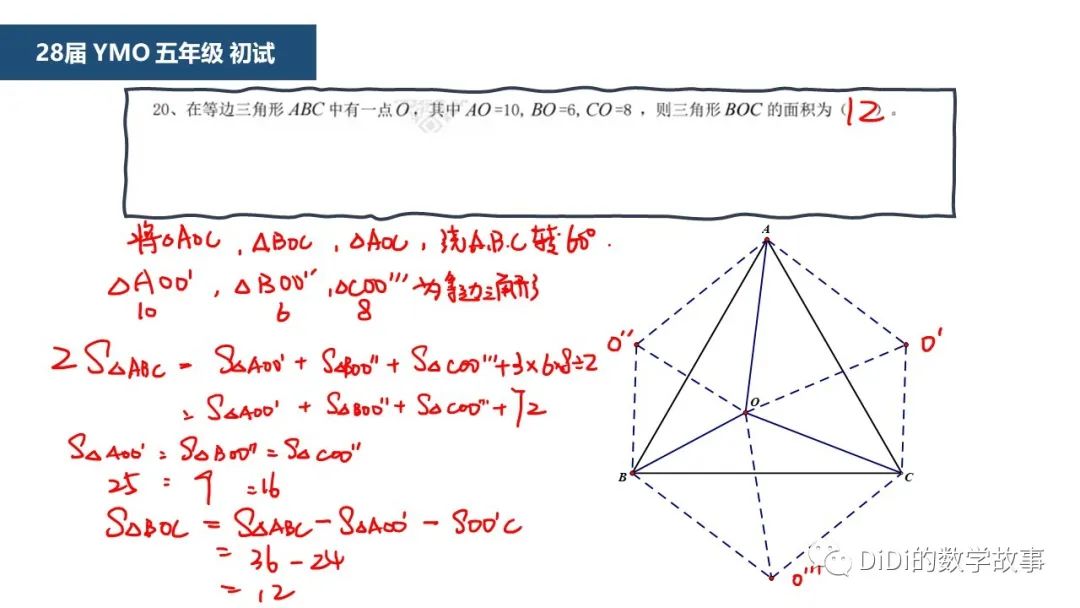 28届 YMO 五年级 初试
20、在等边三角形 ABC 中有一点 O，其中 AO=10, BO=6, CO=8 ，则三角形 BOC 的面积为（ 12 ）。
将△AOC , △BOC , △AOC , 绕A.B.C转60°.
△AOO' , △BOO'' , △COO''' 为等边三角形
10 6 8
2S△ABC = S△AOO' + S△BOO'' + S△COO''' + 3×6×8÷2
= S△AOO' + S△BOO'' + S△COO'' + 72
S△AOO' : S△BOO'' = S△COO''
25 : 9 = 16
S△BOC = S△ABC - S△AOO' - SOO'C
= 36 - 24
= 12
A
O''
O'
O
B
C
O'''
DiDi的数学故事